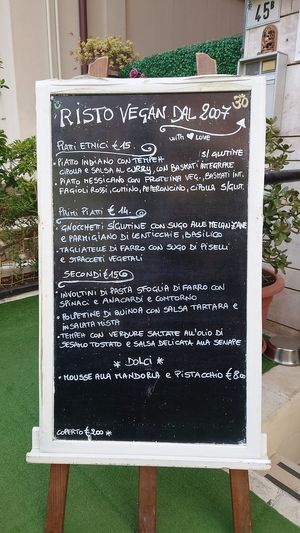 45B
RISTO VEGAN DAL 2007
with ♥ LOVE
PIATTI ETNICI € 15.
S/GLUTINE
• PIATO INDIANO CON TEMPEH
CIPOLLA E SALSA AL CURRY, CON BASMATI INTEGRALE
PIATO MESSICANO CON PROTEINA VEG., BASMATI INT.
FAGIOLI ROSSI, CUMINO, PEPERONCINO, CIPOLLA S/GLUT.
PRIMI PIATTI € 14.
• GNOCCHETTI S/GLUTINE CON SUGO ALLE MELANZANE
E PARMIGIANO DI LENTICCHIE, BASILICO
• TAGLIATELLE DI FARRO CON SUGO DI PISELLI
E STRACCETTI VEGETALI
SECONDI € 15,00
• INVOLTINI DI PASTA SFOGLIA DI FARRO CON
SPINACI E ANACARDI E CONTORNO
• POLPETTINE DI QUINOA CON SALSA TARTARA E
INSALATA MISTA
• TEMPEH CON VERDURE SALTATE ALL'OLIO DI
SESAMO TOSTATO E SALSA DELICATA ALLA SENAPE
* DOLCI *
• MOUSSE ALLA MANDORLA E PISTACCHIO € 8.00
COPERTO € 2.00 *